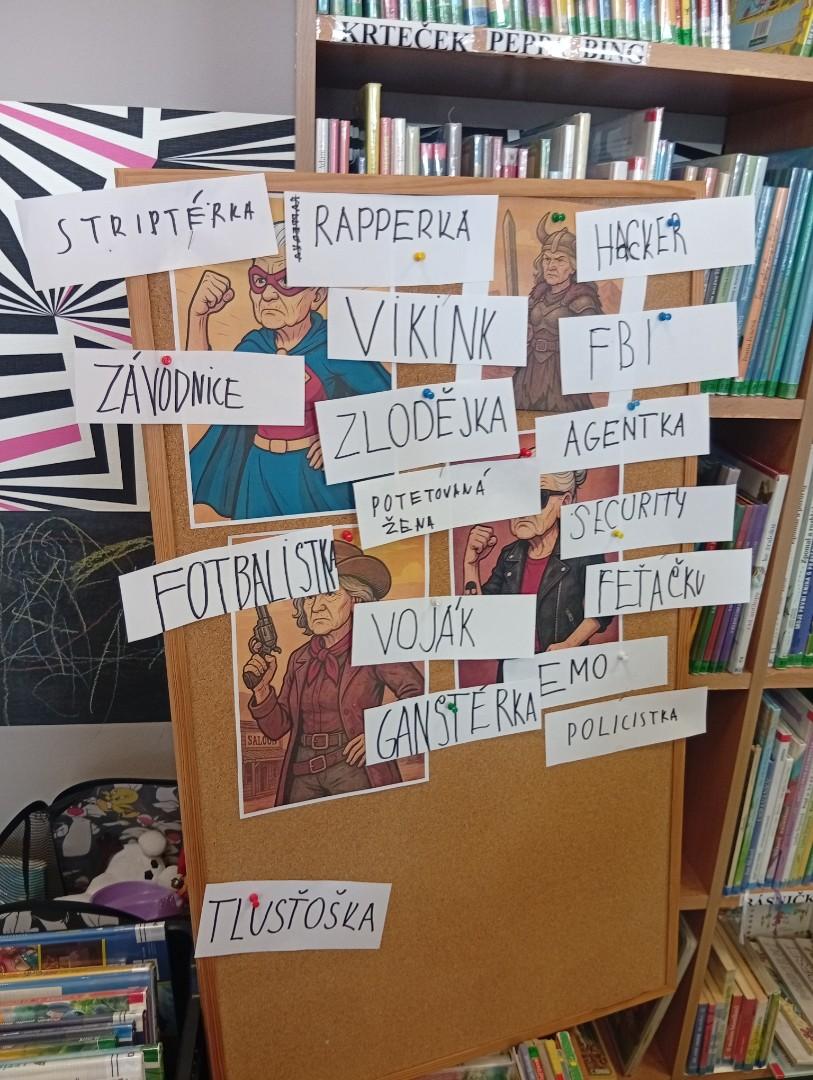 KRTEČEK PEPPA BING
STRIPTÉRKA
RAPPERKA
HACKER
VIKÍNK
FBI
ZÁVODNICE
ZLODĚJKA
AGENTKA
POTETOVANÁ
ŽENA
SECURITY
FOTBALISTKA
FEŤÁČKU
VOJÁK
EMO
GANSTÉRKA
POLICISTKA
SALOON
TLUSŤOŠKA